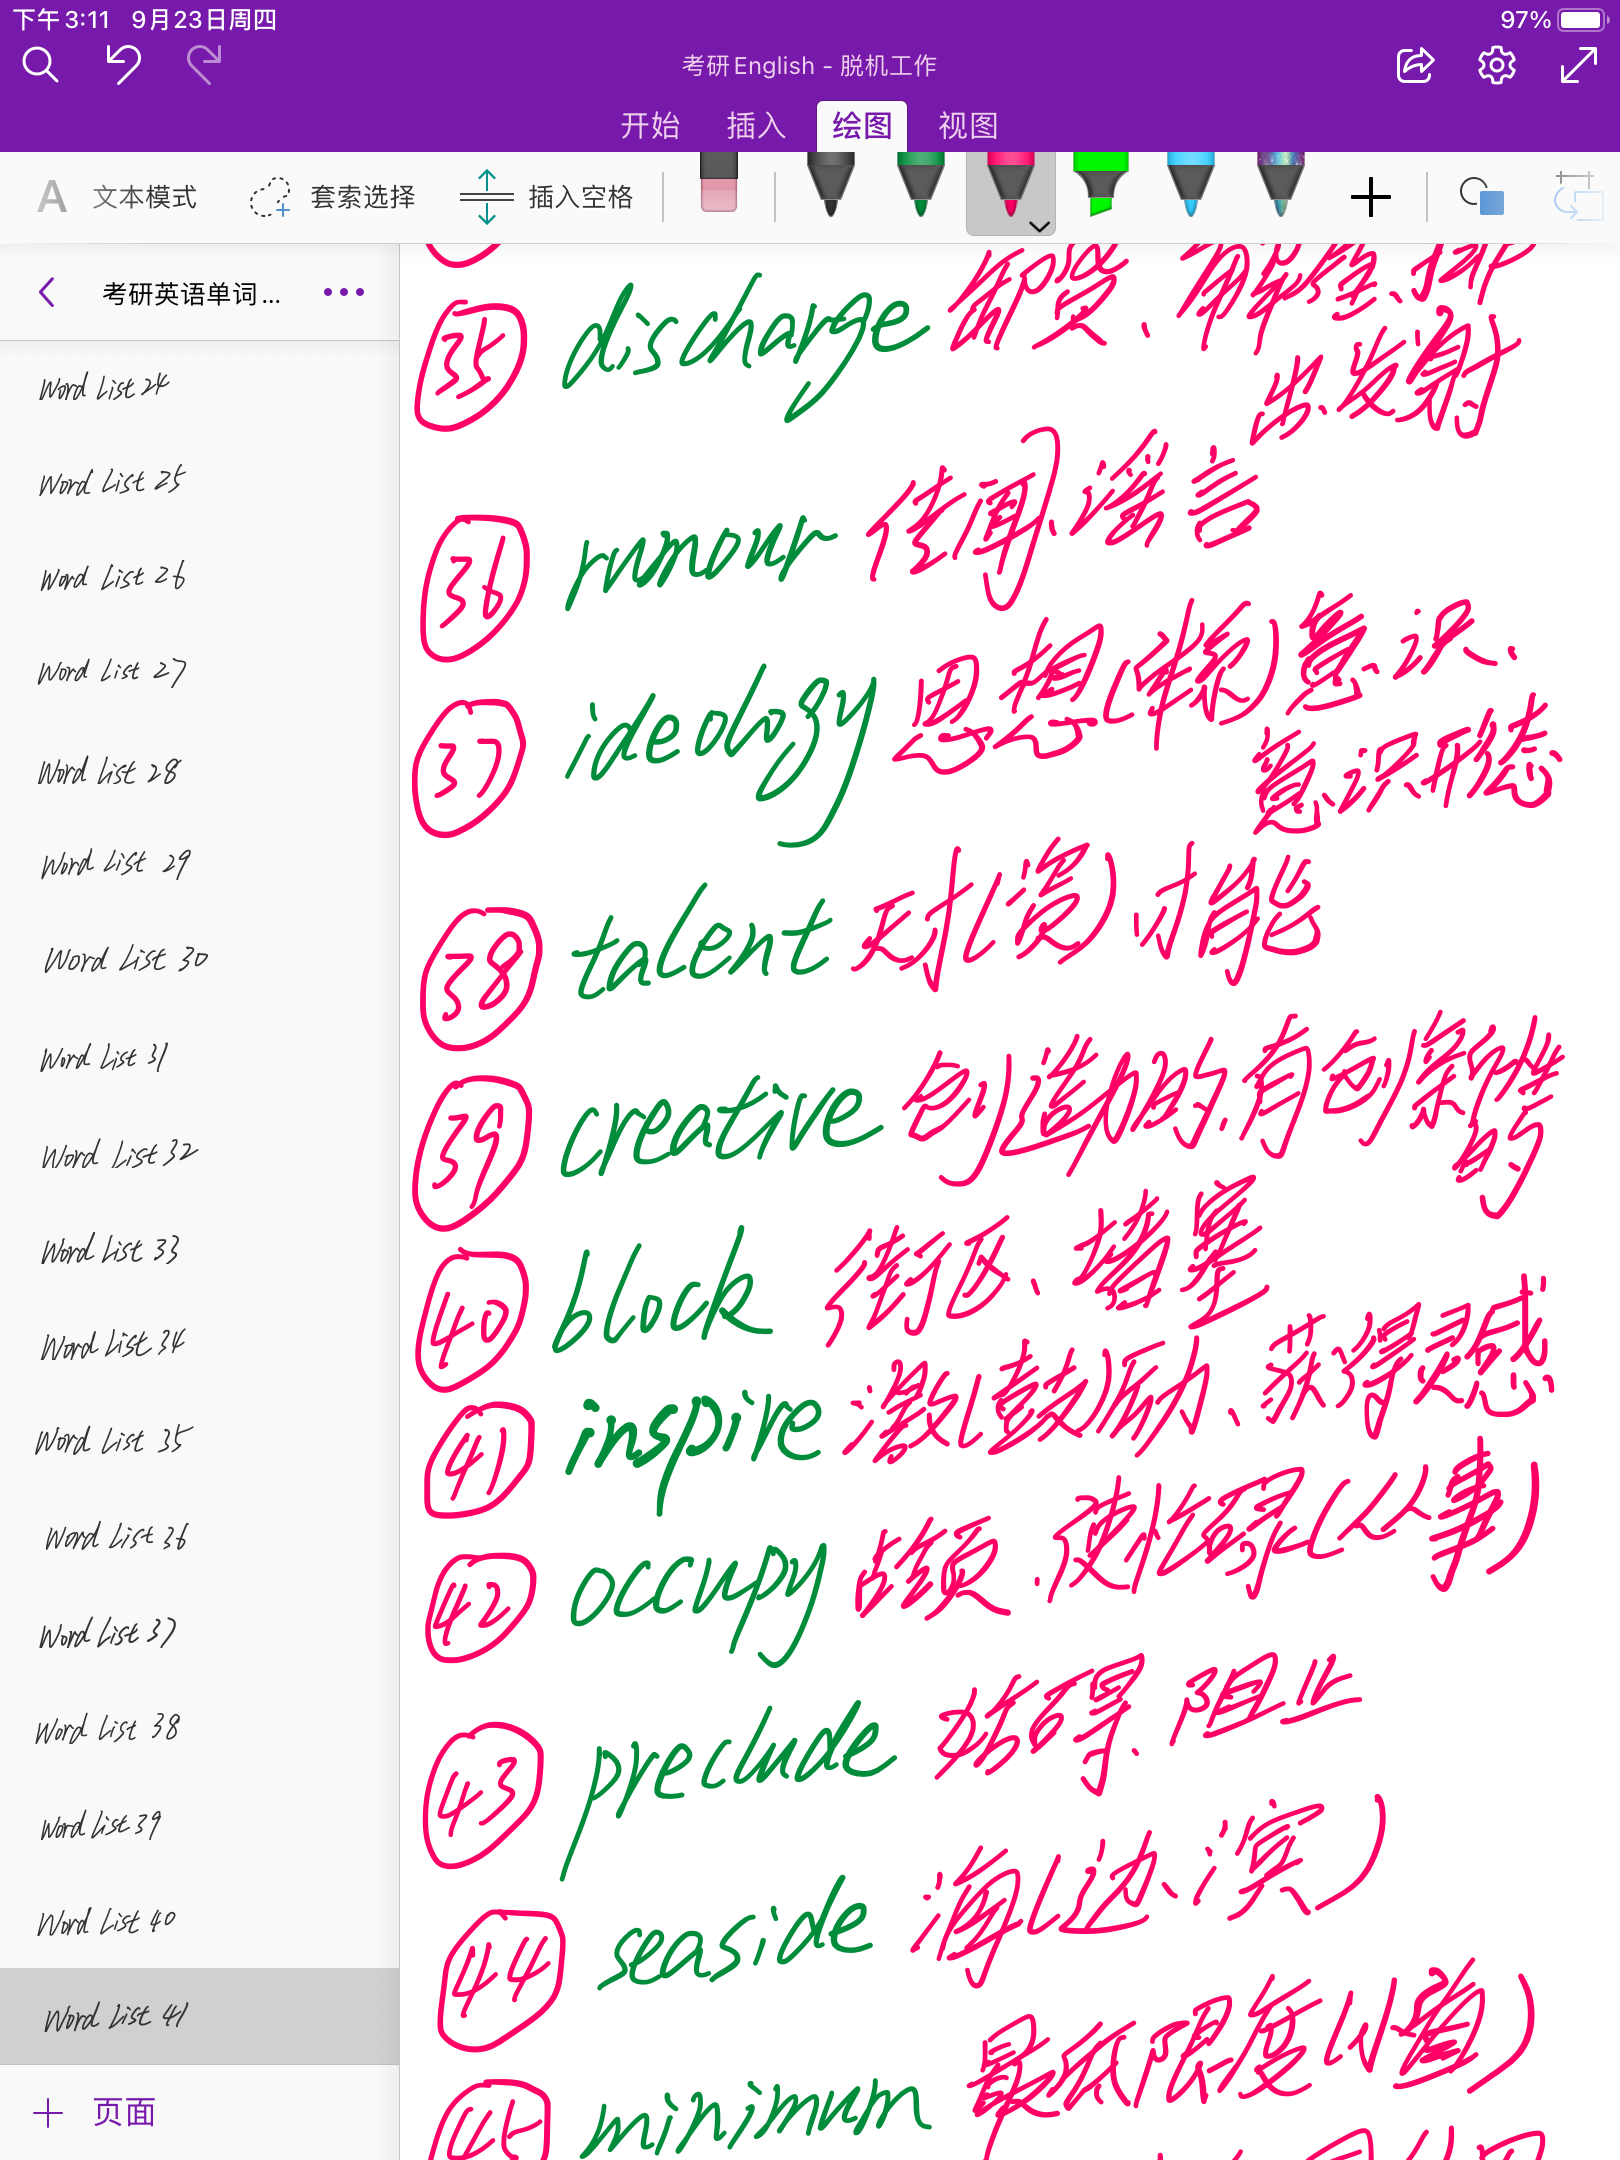 下午3:11 9月23日周四 97%
考研English - 脱机工作
开始 插入 绘图 视图
A 文本模式 套索选择 插入空格
考研英语单词...
Word List 24
Word List 25
Word List 26
Word List 27
Word List 28
Word List 29
Word List 30
Word List 31
Word List 32
Word List 33
Word List 34
Word List 35
Word List 36
Word List 37
Word List 38
Word List 39
Word List 40
Word List 41
页面
35 discharge 卸货、解雇、排
出、发射
36 rumour 传闻、谣言
37 ideology 思想(体系)意识、
意识形态
38 talent 天才(资)、才能
39 creative 创造力的、有创新性
的
40 block 街区、堵塞
41 inspire 激(鼓)励、获得灵感
42 occupy 占领、使忙碌(从事)
43 preclude 妨碍、阻止
44 seaside 海(边、滨)
45 minimum 最低限度(小量)